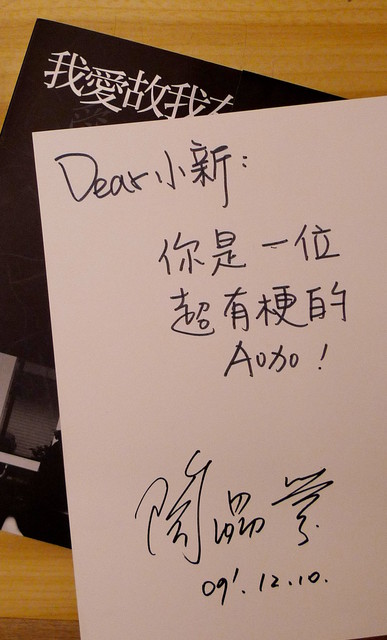 我愛故我在
Dear 小新：
你是一位
超有梗的
Aoao！
陶晶瑩
09'.12.10.